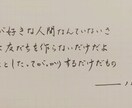 が好きな人間なんていないさ
に友だちを作らないだけだよ
としたってがっかりするだけだもの